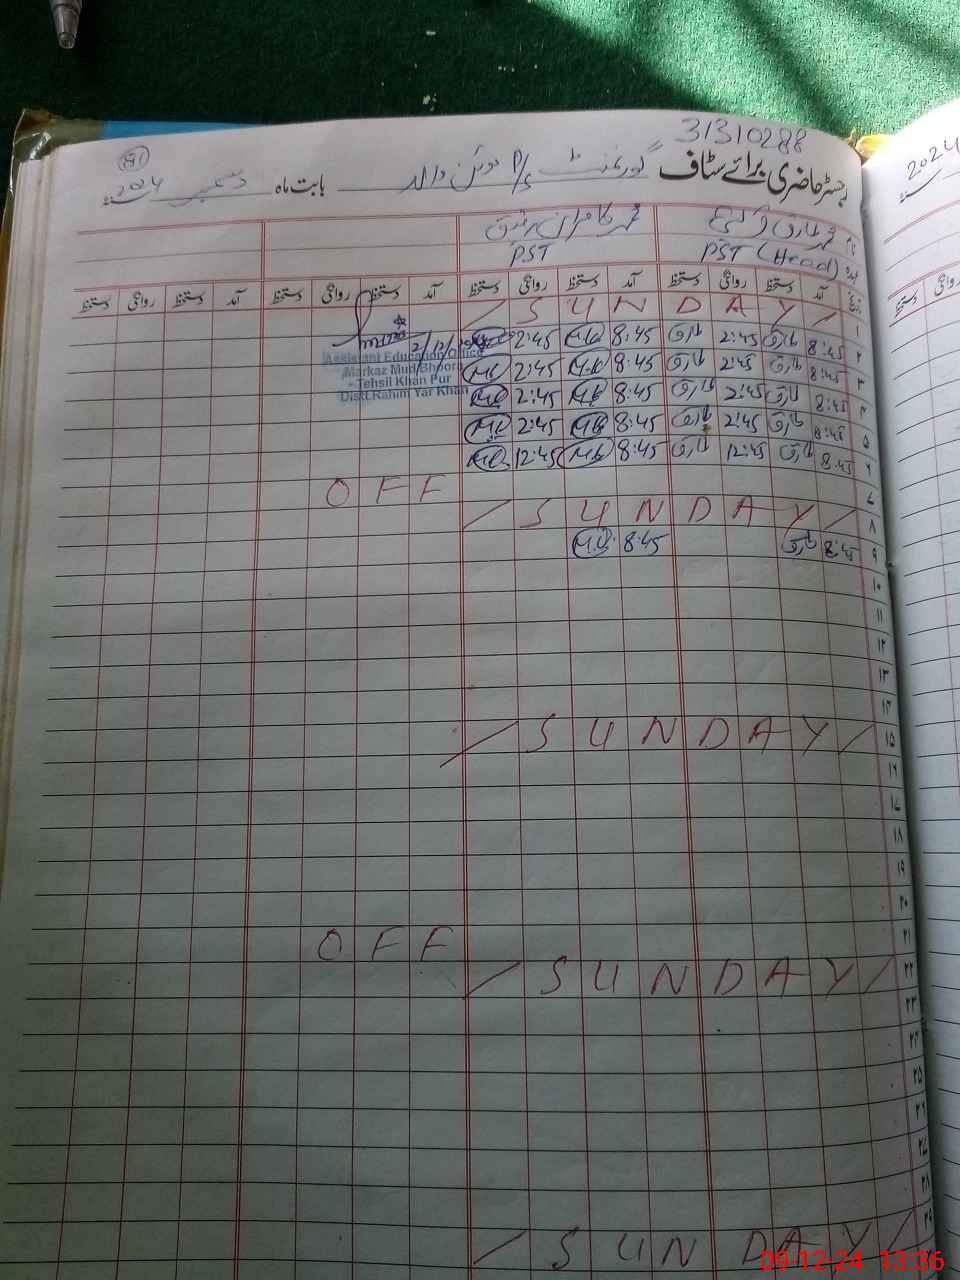 31310288
رجسٹر حاضری برائے سٹاف گورنمنٹ P/S بابت ماہ دسمبر 2024
191
2024
نام محمد طارق محمد کامران
عہدہ PST (Head) PST
تاریخ آمد دستخط روانگی دستخط آمد دستخط روانگی دستخط آمد دستخط روانگی دستخط آمد دستخط روانگی دستخط
روانگی دستخط
۱ / S U N D A Y /
۲ 8:45 طارق 2:45 طارق 8:45 M.K 2:45 M.K
2/12/2024
Assistant Education Officer
Markaz Mud Bhoora
Tehsil Khan Pur
Distt. Rahim Yar Khan
۳ 8:45 طارق 2:45 طارق 8:45 M.K 2:45 M.K
۴ 8:45 طارق 2:45 طارق 8:45 M.K 2:45 M.K
۵ 8:45 طارق 2:45 طارق 8:45 M.K 2:45 M.K
۶ 8:45 طارق 12:45 طارق 8:45 M.K 12:45 M.K
۷ O F F
۸ / S U N D A Y /
۹ 8:45 طارق 8:45 M.K
۱۰
۱۱
۱۲
۱۳
۱۴
۱۵ / S U N D A Y /
۱۶
۱۷
۱۸
۱۹
۲۰
۲۱ O F F
۲۲ / S U N D A Y /
۲۳
۲۴
۲۵
۲۶
۲۷
۲۸
۲۹ / S U N D A Y /
09-12-24 13:36